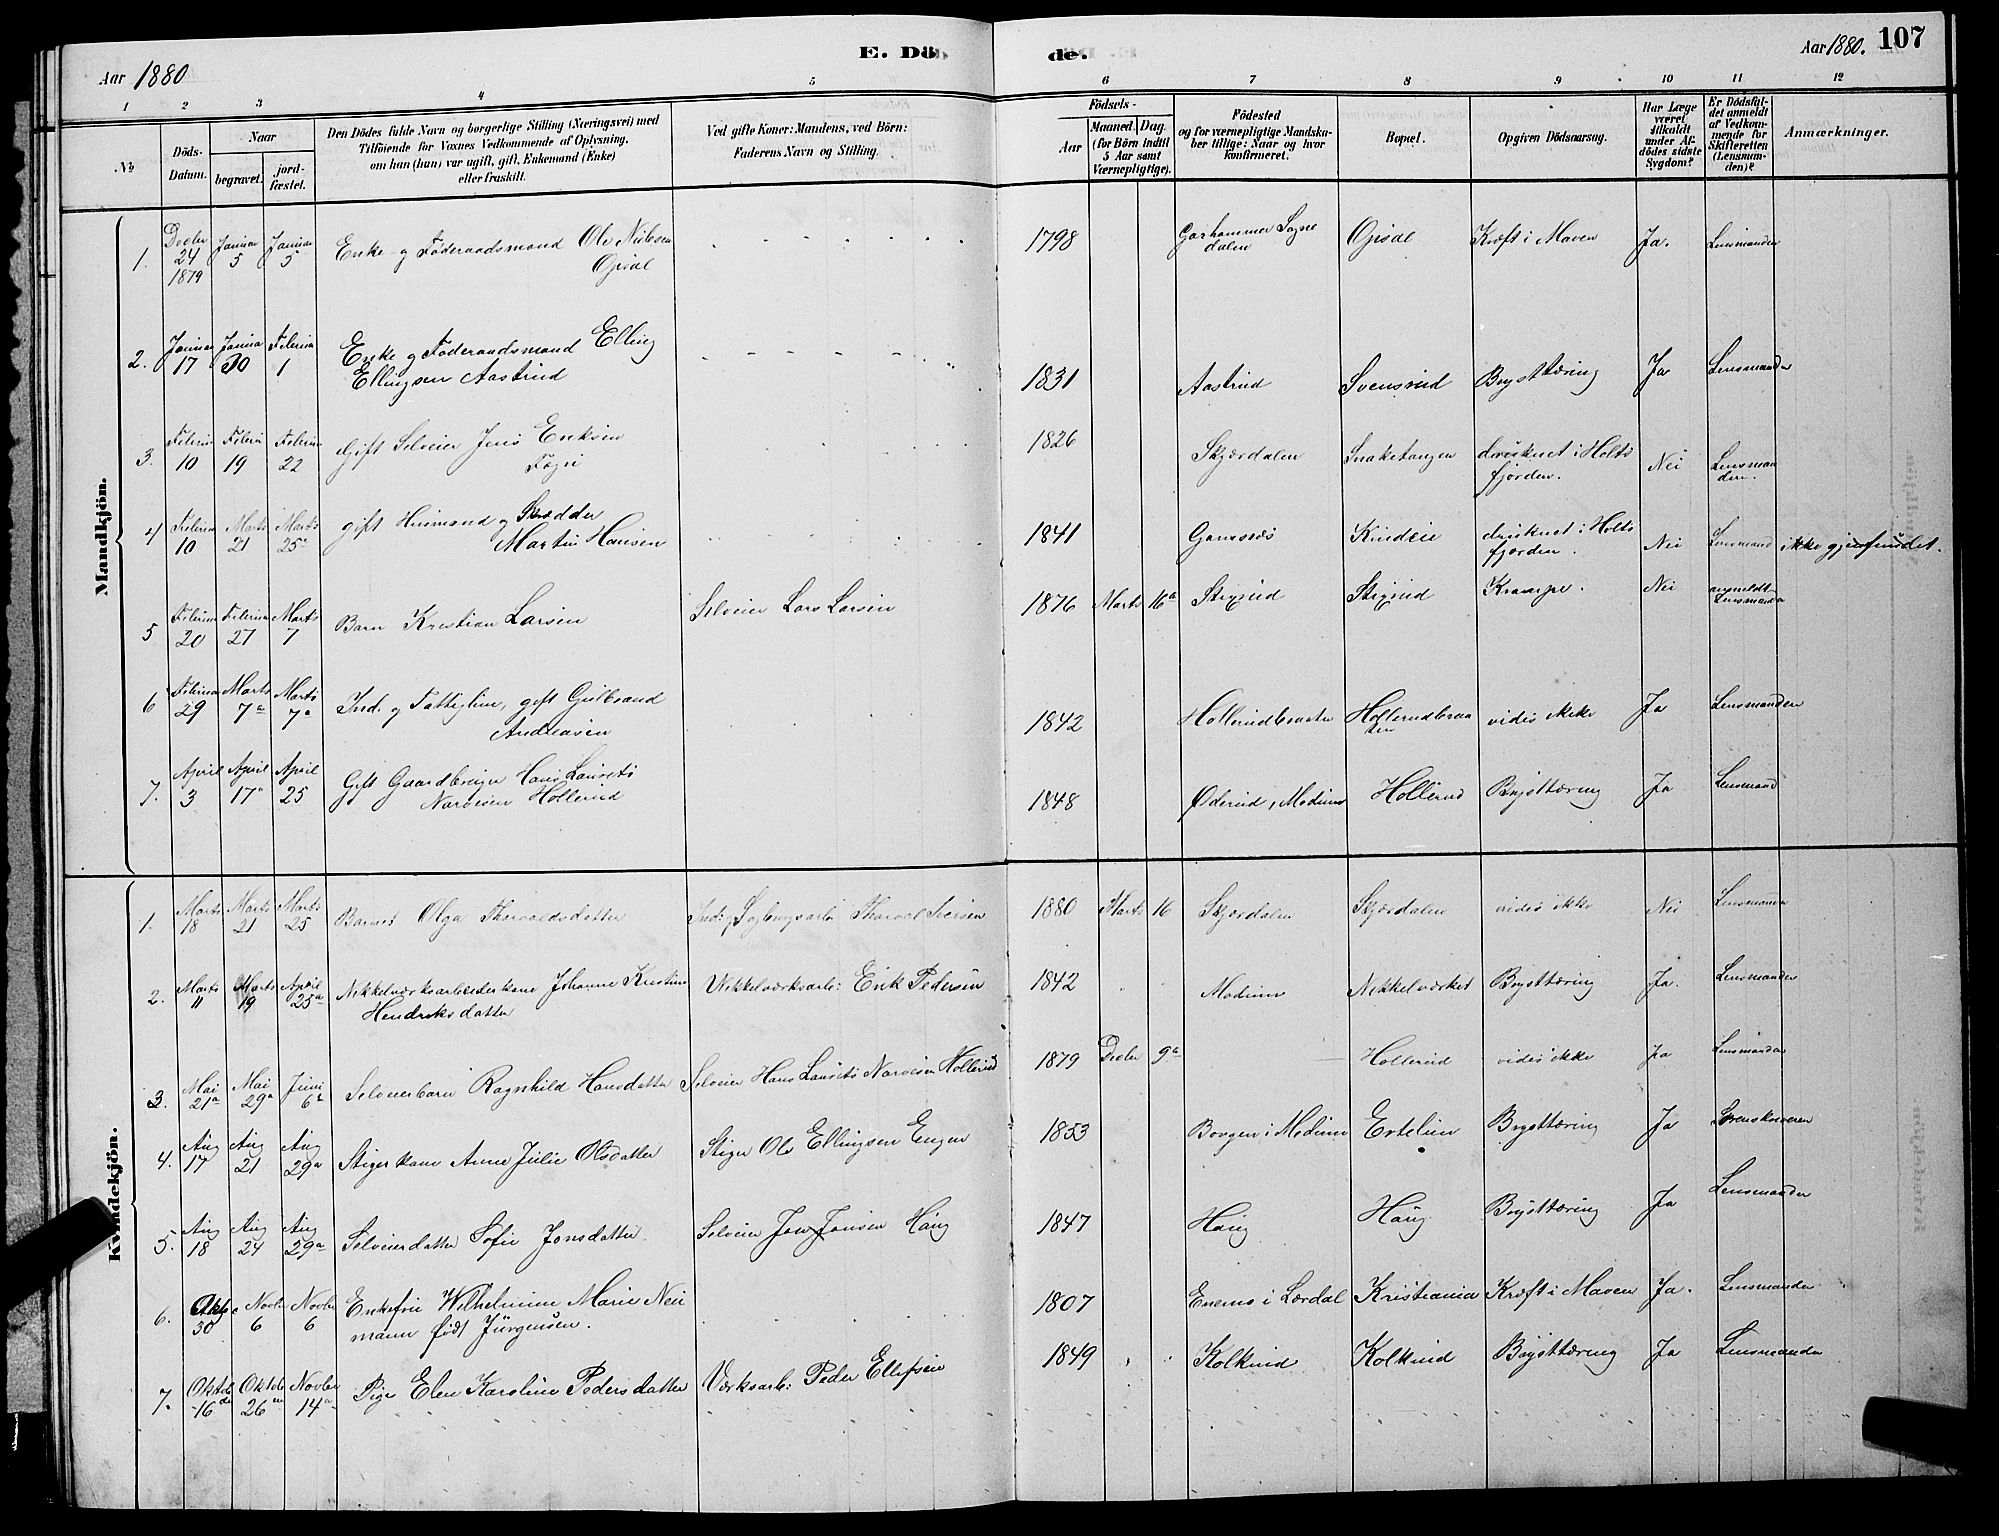 Aar 1880
E. Dö
de.
Aar 1880. 107
1 2 3 4 5 6 7 8 9 10 11 12
No
Döds-
Datum.
Naar
begravet.
jord-
fæstet.
Den Dödes fulde Navn og borgerlige Stilling (Næringsvei) med
Tilföiende for Voxnes Vedkommende af Oplysning,
om han (hun) var ugift, gift, Enkemand (Enke)
eller fraskilt.
Ved gifte Koner: Mandens, ved Börn:
Faderens Navn og Stilling.
Födsels-
Aar
Maaned. Dag.
(for Börn indtil
5 Aar samt
Værnepligtige).
Födested
og for værnepligtige Mandska-
ber tillige: Naar og hvor
konfirmeret.
Bopæl.
Opgiven Dödsaarsag.
Har Læge
været
tilkaldt
under Af-
dödes sidste
Sygdom?
Er Dödsfal-
det anmeldt
af Vedkom-
mende for
Skifteretten
(Lensman-
den)?
Anmærkninger.
Mandkjön.
1. Decbr 24 1879 Januar 5 Januar 5 Enke- og Föderaadsmand Ole Nilsen
Opsal
1798 Opsal Kræft i Maven Ja. Lensmanden
2. Januar 17 Januar 30 Februar 1 Enke og Föderaadsmand Elling
Ellingsen Aastrud
1831 Aastrud Svensrud Brysttæring Ja Lensmanden
3. Februar 10 Februar 19 Februar 22 Gift Selveier Jens Eriksen
1826 Skjærdalen Snaketangen druknet i Holts
fjorden. Nei Lensman
den.
4 Februar 10 Marts 21 Marts 25a gift Husmand og Skrædder
Martin Hansen
1841 druknet i Holts
fjorden. Nei Lensmand ikke gjenfundet.
5 Februar 20 Februar 27 Marts 7 Barn Kristian Larsen Selveier Lars Larsen
1876 Marts 16a Strygsrud Strygsrud Krampe. Nei anmeldt
Lensmanden
6 Februar 29 Marts 7a Marts 7a Ind. og Fattiglem, gift Gulbrand
Andreasen
1842 Hollerudbraaten Hollerudbraa
ten vides ikke Ja Lensmanden
7. April 3 April 17a April 25 Gift Gaardbruger Hans Lauritz
Narvesen Hollerud
1848 Øderud, Modum Hollerud Brysttæring Ja Lensmand
Kvindekjön.
1. Marts 18 Marts 21 Marts 25 Barnet Olga Thorvaldsdatter Ind: og Sagbrugsarb: Thorval Iversen
1880 Marts 16 Skjærdalen Skjærdalen vides ikke Nei Lensmanden
2. Marts 11 Marts 19 April 25a Nikkelværksarbeiderkone Johanne Kristine
Hendriksdatter Nikkelværksarb: Erik Pedersen
1842 Modum Nikkelværket Brysttæring Ja. Lensmanden
3. Mai 21a Mai 29a Juni 6t Selveierbarn Ragnhild Hansdatter Selveier Hans Lauritz Narvesen Hollerud
1879 Decbr 9a Hollerud vides ikke Ja Lensmanden
4. Aug 17 Aug 21 Aug 29a Stigerkone Anne Julie Olsdatter Stiger Ole Ellingsen Engen
1853 Borgen i Modum Ertelien Brysttæring Ja Sorenskriveren
5. Aug 18 Aug 24 Aug 29a Selveierdatter Sofie Jonsdatter Selveier Jon Jonsen Haug
1847 Haug Haug Brysttæring Ja Lensmanden
6. Oktbr 30 Novbr 6 Novbr 6 Enkefru Wilhelmine Marie Neu
mann født Jürgensen.
1807 Lærdal Kristiania Kræft i Maven Ja. Lensmanden
7. Oktob 16de Oktob 26en Novbr 14a Pige Elen Karoline Pedersdatter Værksarb: Peder Ellefsen
1849 Kolkind Kolkind Brysttæring Ja Lensmanden